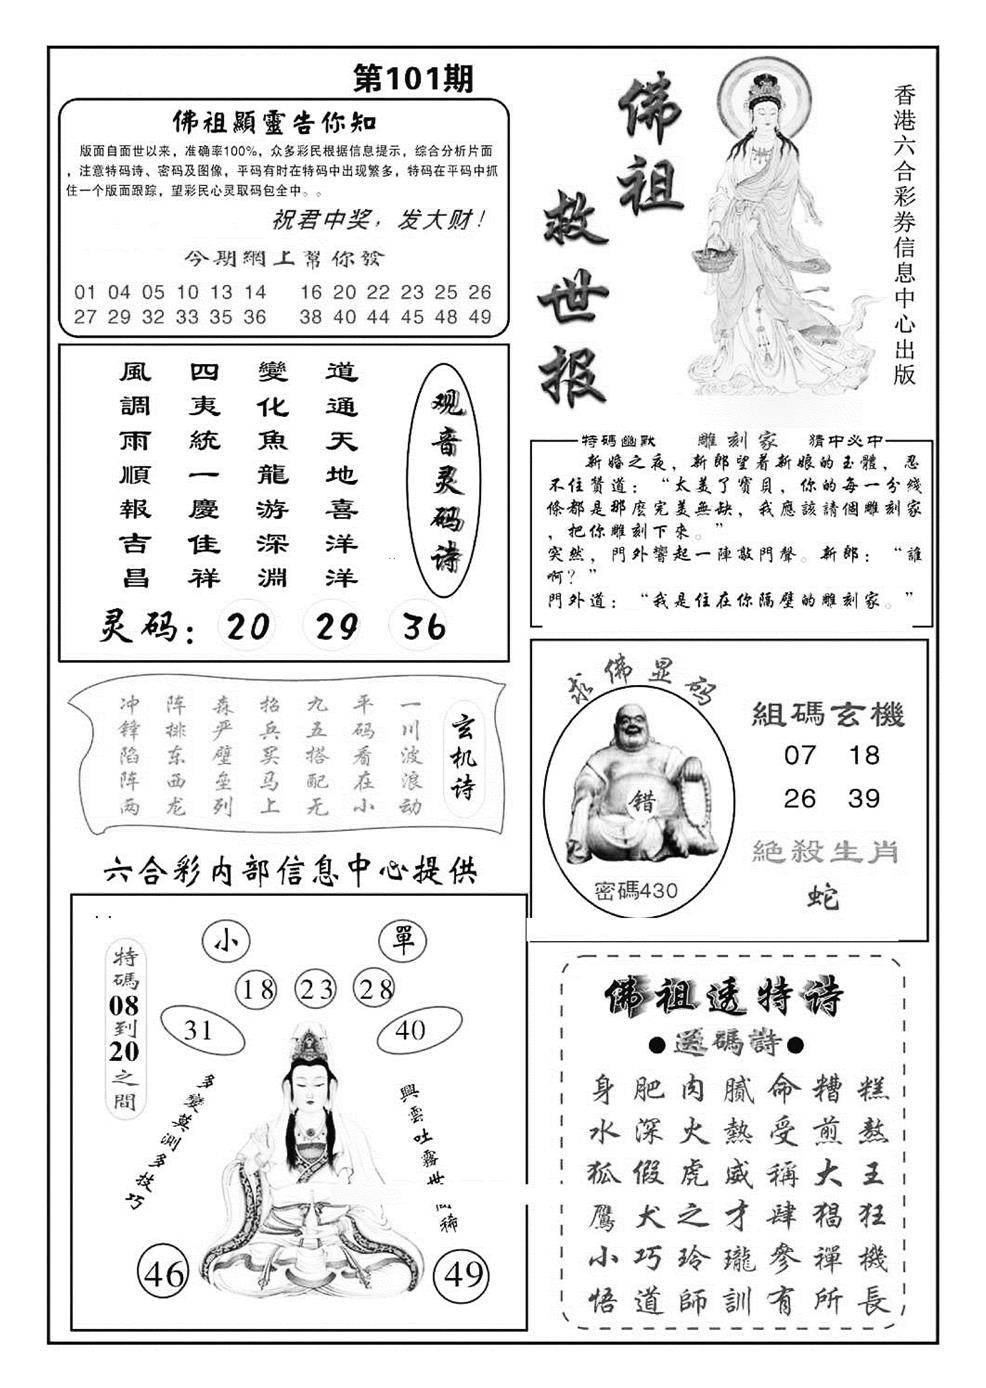 第101期
佛祖顯靈告你知
版面自面世以来，准确率100%，众多彩民根据信息提示，综合分析片面
，注意特码诗、密码及图像，平码有时在特码中出现繁多，特码在平码中抓
住一个版面跟踪，望彩民心灵取码包全中。。
祝君中奖，发大财！
今期網上幫你發
01 04 05 10 13 14 16 20 22 23 25 26
27 29 32 33 35 36 38 40 44 45 48 49
佛祖
救世报
香港六合彩券信息中心出版
观音灵码诗
道通天地喜洋洋
變化魚龍游深淵
四夷統一慶佳祥
風調雨順報吉昌
灵码：20 29 36
特碼幽默 雕刻家 猜中必中
新婚之夜，新郎望着新娘的玉體，忍
不住贊道：“太美了寶貝，你的每一分綫
條都是那麼完美無缺，我應該請個雕刻家
，把你雕刻下來。”
突然，門外響起一陣敲門聲。新郎：“誰
啊？”
門外道：“我是住在你隔壁的雕刻家。”
玄机诗
一川波浪动
平码看在小
九五搭配无
招兵买马上
森严壁垒列
阵排东西龙
冲锋陷阵两
求佛显码
错
密碼430
組碼玄機
07 18
26 39
絕殺生肖
蛇
六合彩内部信息中心提供
小 單
18 23 28
31 40
特碼08到20之間
多變莫測多技巧
興雲吐霧世間稀
46 49
佛祖透特诗
●送碼詩●
身肥肉膩命糟糕
水深火熱受煎熬
狐假虎威稱大王
鷹犬之才肆猖狂
小巧玲瓏參禪機
悟道師訓有所長